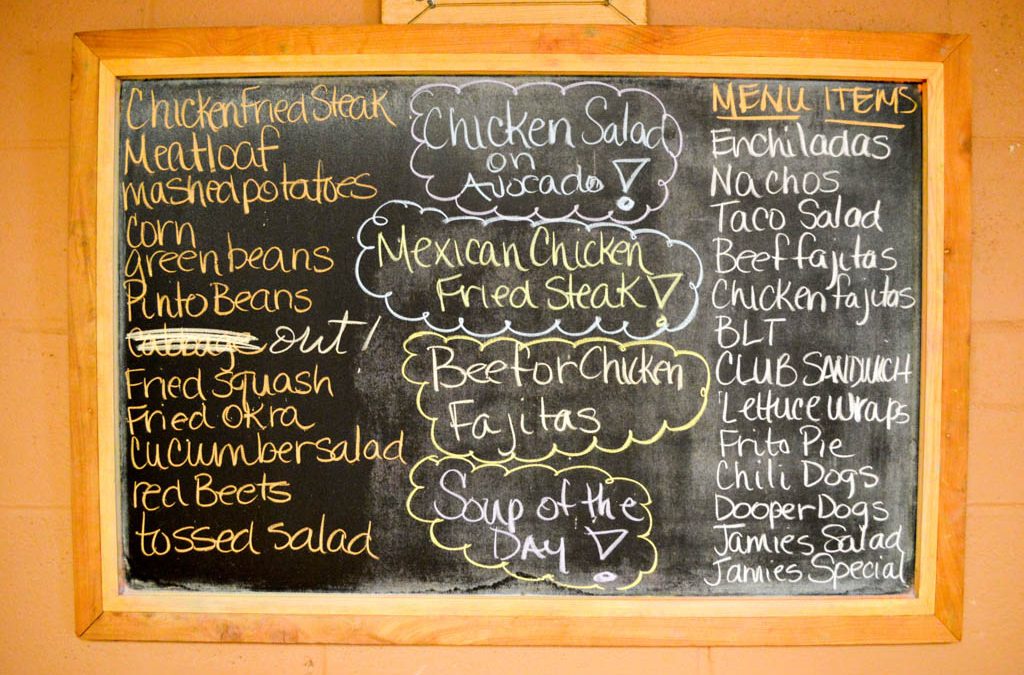 Chicken Fried Steak
Meatloaf
mashed potatoes
corn
green beans
Pinto Beans
Cabbage out!
Fried Squash
Fried Okra
Cucumber salad
red Beets
tossed salad
Chicken Salad
on
Avocado!
Mexican Chicken
Fried Steak!
Beef or Chicken
Fajitas
Soup of the
DAY!
MENU ITEMS
Enchiladas
Nachos
Taco Salad
Beef fajitas
Chicken fajitas
BLT
CLUB SANDWICH
Lettuce Wraps
Frito Pie
Chili Dogs
Dooper Dogs
Jamies Salad
Jamies Special